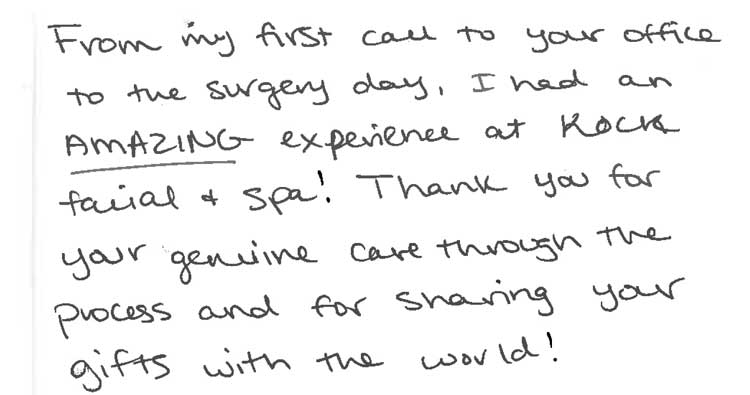 From my first call to your office
to the surgery day, I had an
AMAZING experience at Kock
facial + spa! Thank you for
your genuine care through the
process and for sharing your
gifts with the world!